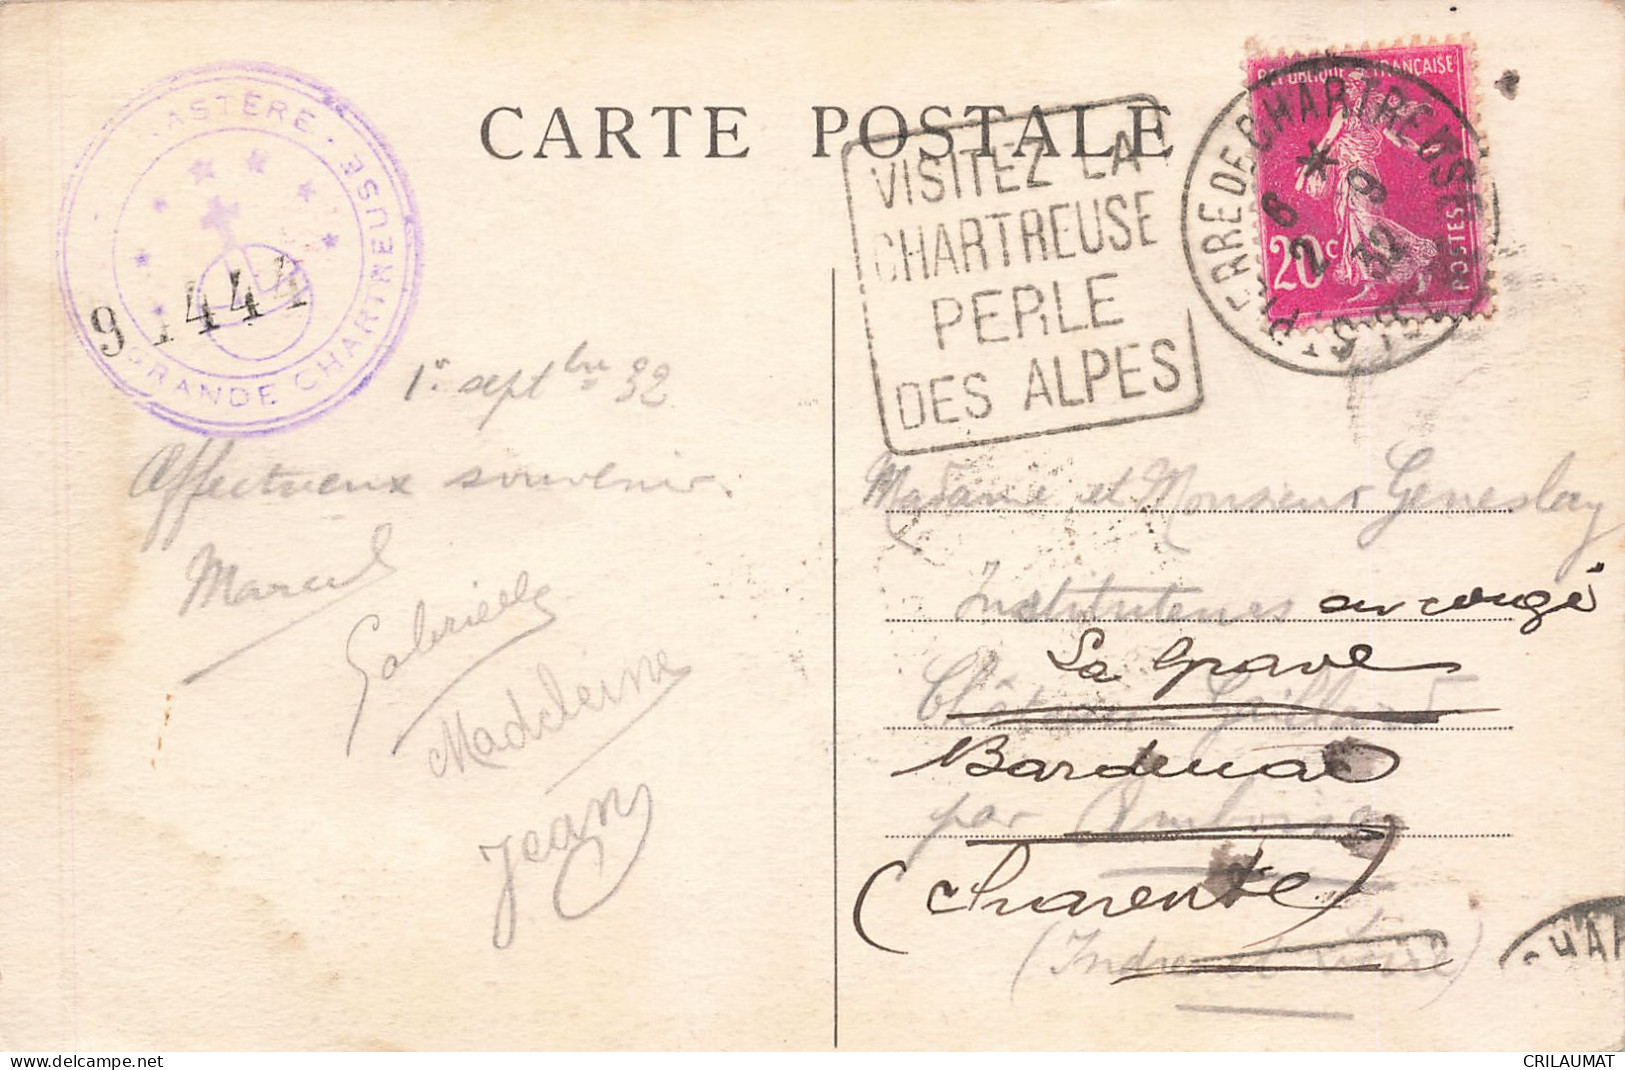 CARTE POSTALE
ASTÈRE
GRANDE CHARTREUSE
VISITEZ LA
CHARTREUSE
PERLE
DES ALPES
RÉPUBLIQUE FRANÇAISE
20c
POSTES
ST PIERRE DE CHARTREUSE
2 9
32
1er septbre 32
Affectueux souvenir.
Marcel
Gabrielle
Madeleine
Jean
Madame et Monsieur Geneslay
Instituteurs en congé
Château Gaillard
La Grave
par Amboise
Bardenac
(Charente)
(Indre et Loire)
delcampe.net
CRILAUMAT